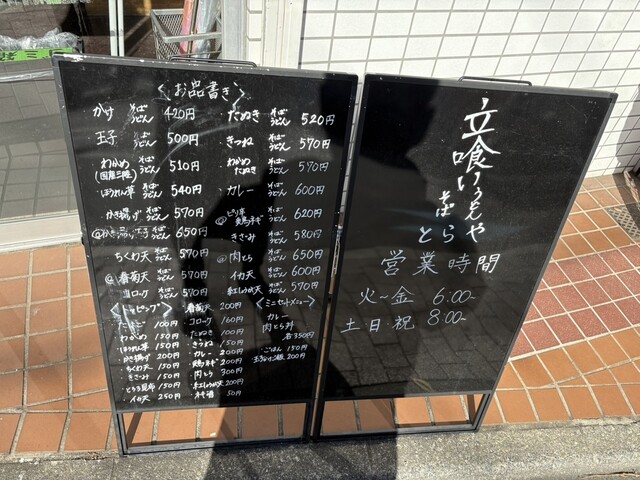 <お品書き>
かけ そば うどん 420円
玉子 そば うどん 500円
わかめ (国産三陸) そば うどん 510円
ほうれん草 そば うどん 540円
かき揚げ そば うどん 570円
650円
ちくわ天 そば うどん 570円
@春菊天 そば うどん 570円
コロッケ そば うどん 570円
・たぬき そば うどん 520円
・きつね そば うどん 570円
わかめ たぬき そば うどん 570円
・カレー そば うどん 600円
620円
ささみ そば うどん 580円
@肉とら そば うどん 650円
イカ天 そば うどん 600円
紅しょうが天 そば うどん 570円
<トッピング>
100円
わかめ 150円
ほうれん草 150円
かき揚げ 200円
ちくわ天 150円
ささみ 150円
とろろ昆布 150円
イカ天 250円
春菊天 200円
コロッケ 160円
たぬき 100円
きつね 150円
カレー 200円
200円
肉とら 300円
紅しょうが天 200円
50円
<ミニセットメニュー>
カレー
肉とら丼
各350円
ごはん 150円
200円
立喰いうどんや
そば とら
営業時間
火〜金 6:00〜
土日・祝 8:00〜